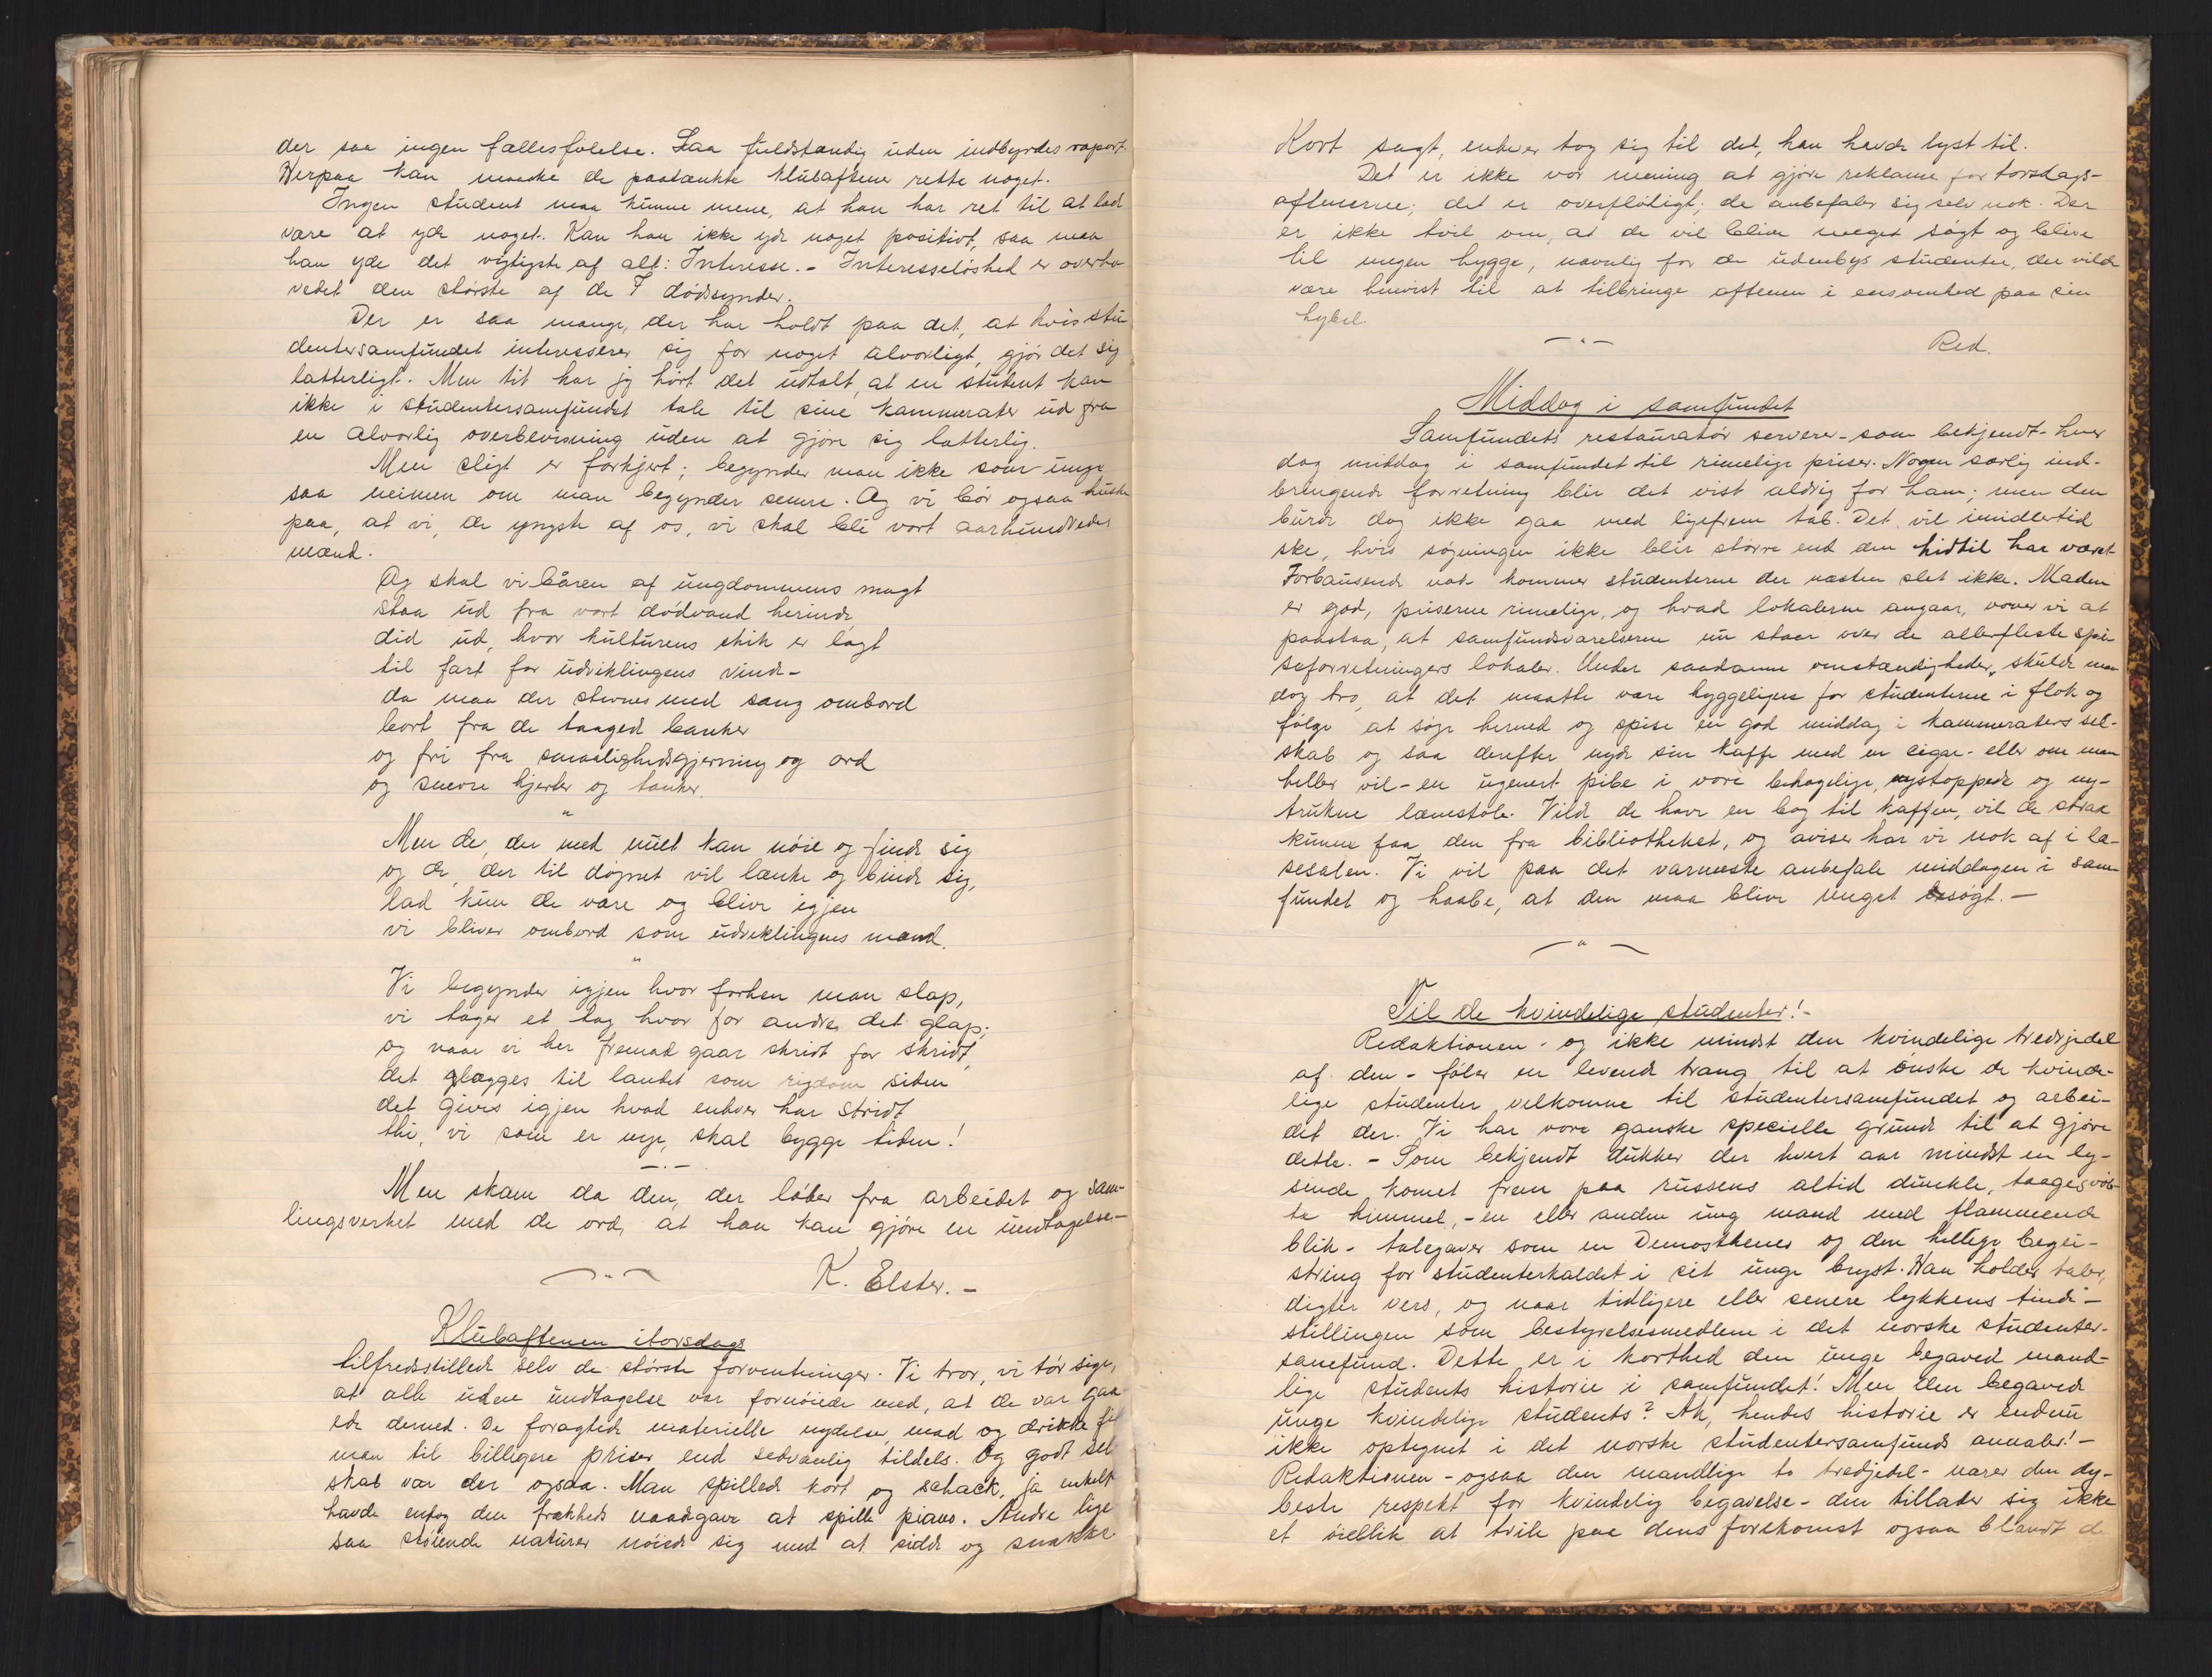 der saa ingen fællesfölelse. Saa fuldstændig uden indbyrdes raport.
Herpaa kan maaske de paatænkte klubaftener rette noget.
Ingen student maa kunne mene, at han har ret til at lad
være at yde noget. Kan han ikke yde noget positivt, saa maa
han yde det vigtigste af alt: Interesse. - Interesselöshed er overho
vedet den störste af de 7 dödssynder.
Der er saa mange, der har holdt paa det, at hvis stu
dentersamfundet interesserer sig for noget alvorligt, gjör det sig
latterligt. Men tit har jeg hört det udtalt, at en student kan
ikke i studentersamfundet tale til sine kammerater ud fra
en alvorlig overbevisning uden at gjöre sig latterlig.
Men sligt er forkjert; begynder man ikke som unge
saa neimen om man begynder senere. Og vi bör ogsaa huske
paa, at vi, de yngste af os, vi skal bli vort aarhundredes
mænd.
Og skal vi baaren af ungdommens magt
staa ud fra vort dödvand herinde,
did ud, hvor kulturens skib er lagt
til fart for udviklingens vinde -
da maa der stevnes med sang ombord
bort fra de taagede banker
og fri fra smaalighedsgjerning og ord
og snevre hjerter og tanker.
"
Men de, der med nuet kan nöie og finde sig
og de, der til dögnet vil lænke og binde sig,
lad kun de være og blive igjen
vi bliver ombord som udviklingens mænd.
"
Vi begynder igjen hvor forhen man slap,
vi tager et tag hvor for andre det glap;
og naar vi her fremad gaar skridt for skridt,
det glægges til landet som rigdom siden
det gives igjen hvad enhver har stridt
thi, vi som er unge, skal bygge tiden!
— . —
Men skam da den, der löber fra arbeidet og sam-
lingsverket med de ord, at han kan gjöre en undtagelse. -
K. Elster. -
Klubaftenen itorsdags
tilfredsstillede selv de störste forventninger. Vi tror, vi tör sige,
at alle uden undtagelse var fornöiede med, at de var gaa
ede derned. De foragtede materielle nydelser, mad og drikke fik
man til billigere priser end sedvanlig tildels. Og godt sel
skab var der ogsaa. Man spillede kort og schack, ja enkelt
havde endog den frækheds naadgave at spille piano. Andre lige
saa stöiende naturer nöiede sig med at sidde og snakke
Kort sagt, enhver tog sig til det, han havde lyst til.
Det er ikke vor mening at gjöre reklame for torsdags-
aftenerne; det er overflödigt; de anbefaler sig selv nok. Der
er ikke tvil om, at de vil blive meget sögt og blive
til megen hygge, navnlig for de udenbys studenter, der vilde
være henvist til at tilbringe aftenen i ensomhed paa sin
hybel.
— " —
Red.
Middag i samfundet
Samfundets restauratör serverer - som bekjendt - hver
dag middag i samfundet til rimelige priser. Nogen særlig ind-
bringende forretning blir det vist aldrig for ham; men den
burde dog ikke gaa med ligefrem tab. Det vil imidlertid
ske, hvis sögningen ikke blir större end den hidtil har været
Forbausende nok kommer studenterne der næsten slet ikke. Maden
er god, priserne rimelige, og hvad lokalerne angaar, vover vi at
paastaa, at samfundsværelserne nu staar over de allerfleste spi-
seforretningers lokaler. Under saadanne omstændigheder, skulde man
dog tro, at det maatte være hyggeligere for studenterne i flok og
fölge at söge herned og spise en god middag i kammeraters sel-
skab og saa derefter nyde sin kaffe med en cigar - eller om man
heller vil - en ugenert pibe i vore behagelige, nystoppede og ny-
trukne lænestole. Vilde de have en bog til kaffen, vil de strax
kunne faa den fra bibliotheket, og aviser har vi nok af i læ-
sesalen. Vi vil paa det varmeste anbefale middagen i sam-
fundet og haabe, at den maa blive meget besögt. -
— " —
Til de kvindelige studenter! -
Redaktionen - og ikke mindst den kvindelige tredjedel
af den - föler en levende trang til at önske de kvinde-
lige studenter velkomne til studentersamfundet og arbei-
det der. Vi har vore ganske specielle grunde til at gjöre
dette. - Som bekjendt dukker der hvert aar mindst en ly-
sende komet frem paa russens altid dunkle, taagesvöb-
te himmel, - en eller anden ung mand med flammende
blik - talegaver som en Demosthenes og den hellige begei-
string for studenterkaldet i sit unge bryst. Han holder taler,
digter vers, og naar tidligere eller senere lykkens tinde -
stillingen som bestyrelsesmedlem i det norske studenter-
samfund. Dette er i korthed den unge begavede mand-
lige students historie i samfundet! Men den begavede
unge kvindelige students? Ak, hendes historie er endnu
ikke optegnet i det norske studentersamfunds annaler! -
Redaktionen - ogsaa den mandlige to tredjedel - nærer den dy-
beste respekt for kvindelig begavelse - den tillader sig ikke
et öieblik at tvile paa dens forekomst ogsaa blandt de